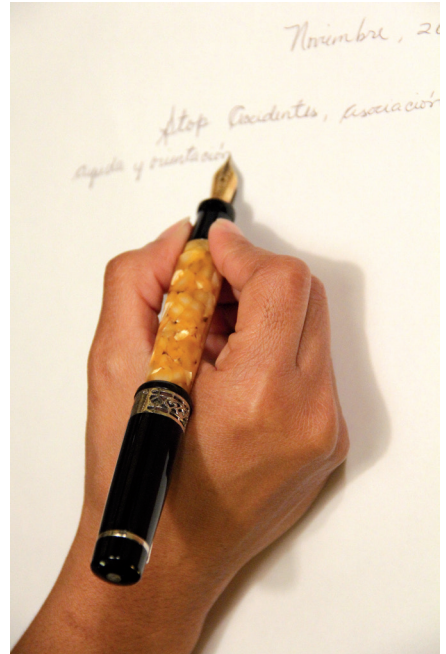 Noviembre, 20
Stop Accidentes, asociación
ayuda y orientación